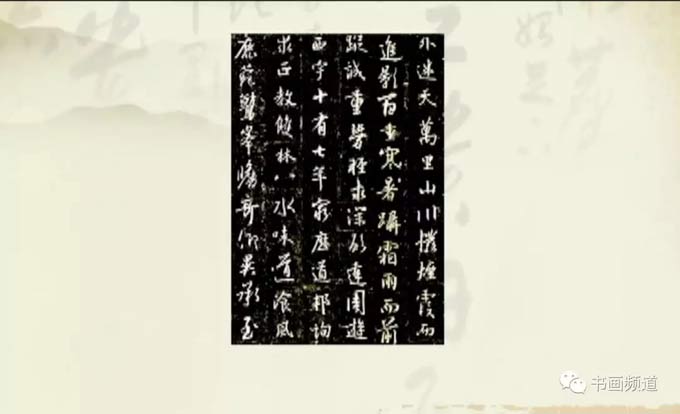 外迷天萬里山川撥煙霞而
進影百重寒暑躡霜雨而前
蹤誠重勞輕求深願達周遊
西宇十有七年窮歷道邦詢
求正教雙林八水味道飡風
鹿菀鷲峯瞻奇仰異承至
书画频道